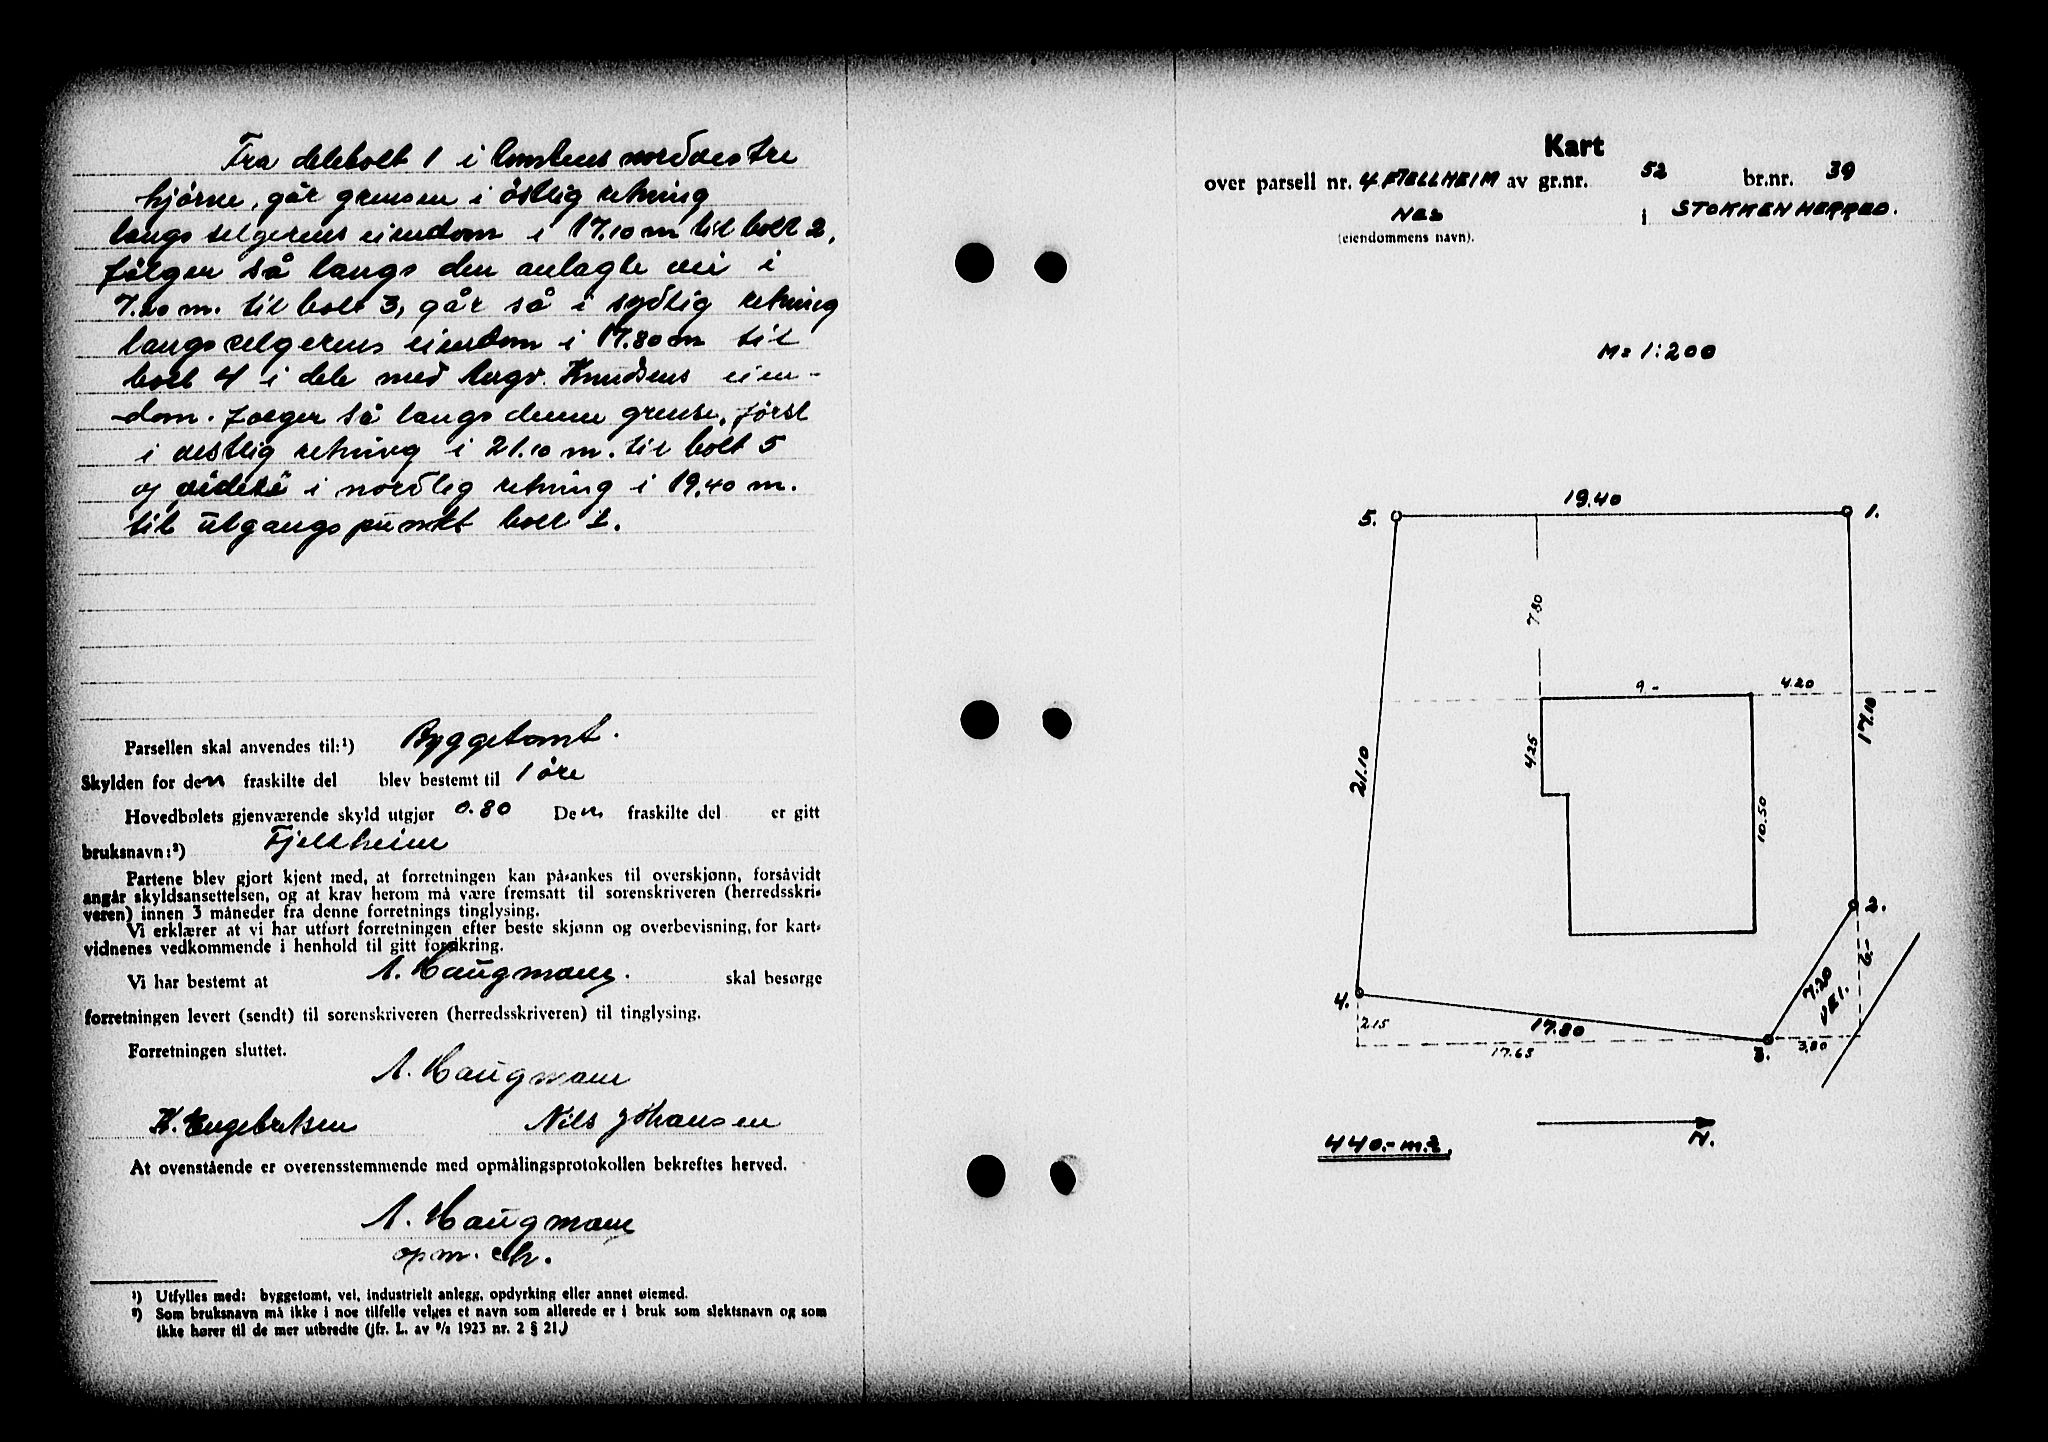 Fra delebolt 1 i tomtens nordvestre
hjørne, går grensen i östlig retning
langs selgerens eiendom i 17.10 m til bolt 2,
følger så langs den anlagte vei i
7.20 m. til bolt 3, går så i sydlig retning
langs selgerens eiendom i 17.80 m til
bolt 4 i dele med Knudsens eien-
dom. Følger så langs denne grense, først
i vestlig retning i 21.10 m. til bolt 5
og videre i nordlig retning i 19,40 m.
til utgangspunkt bolt 1.
Parsellen skal anvendes til:¹) Byggetomt.
Skylden for den fraskilte del blev bestemt til 1 öre
Hovedbølets gjenværende skyld utgjør 0.80 Den fraskilte del er gitt
bruksnavn:²) Fjellheim
Partene blev gjort kjent med, at forretningen kan påankes til overskjønn, forsåvidt
angår skyldsansettelsen, og at krav herom må være fremsatt til sorenskriveren (herredsskri-
veren) innen 3 måneder fra denne forretnings tinglysing.
Vi erklærer at vi har utført forretningen efter beste skjønn og overbevisning, for kart-
vidnenes vedkommende i henhold til gitt forsikring.
Vi har bestemt at A. Haugmann. skal besørge
forretningen levert (sendt) til sorenskriveren (herredsskriveren) til tinglysing.
Forretningen sluttet.
A. Haugmann
K. Engebretsen Nils Johansen
At ovenstående er overensstemmende med opmålingsprotokollen bekreftes herved.
A. Haugmann
opm.
¹) Utfylles med: byggetomt, vei, industrielt anlegg, opdyrking eller annet øiemed.
²) Som bruksnavn må ikke i noe tilfelle velges et navn som allerede er i bruk som slektsnavn og som
ikke hører til de mer utbredte (jfr. L. av ⁹/₂ 1923 nr. 2 § 21.)
Kart
over parsell nr. 4 FJELLHEIM av gr.nr. 52 br.nr. 39
NES i STOKKEN HERRED.
(eiendommens navn).
M= 1:200
5. 19.40 1.
7.80
9.- 4.20
17.10
4.25
21.10
10.50
2.
6.-
7.20
VEI.
4.
2.15 17.80
17.65 3. 3,80
440.- m.2.
N.